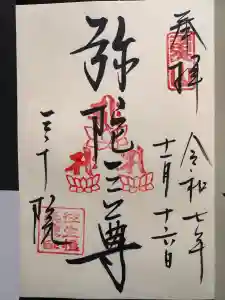 奉拝
令和七年
十一月十六日
弥陀三尊
三千院